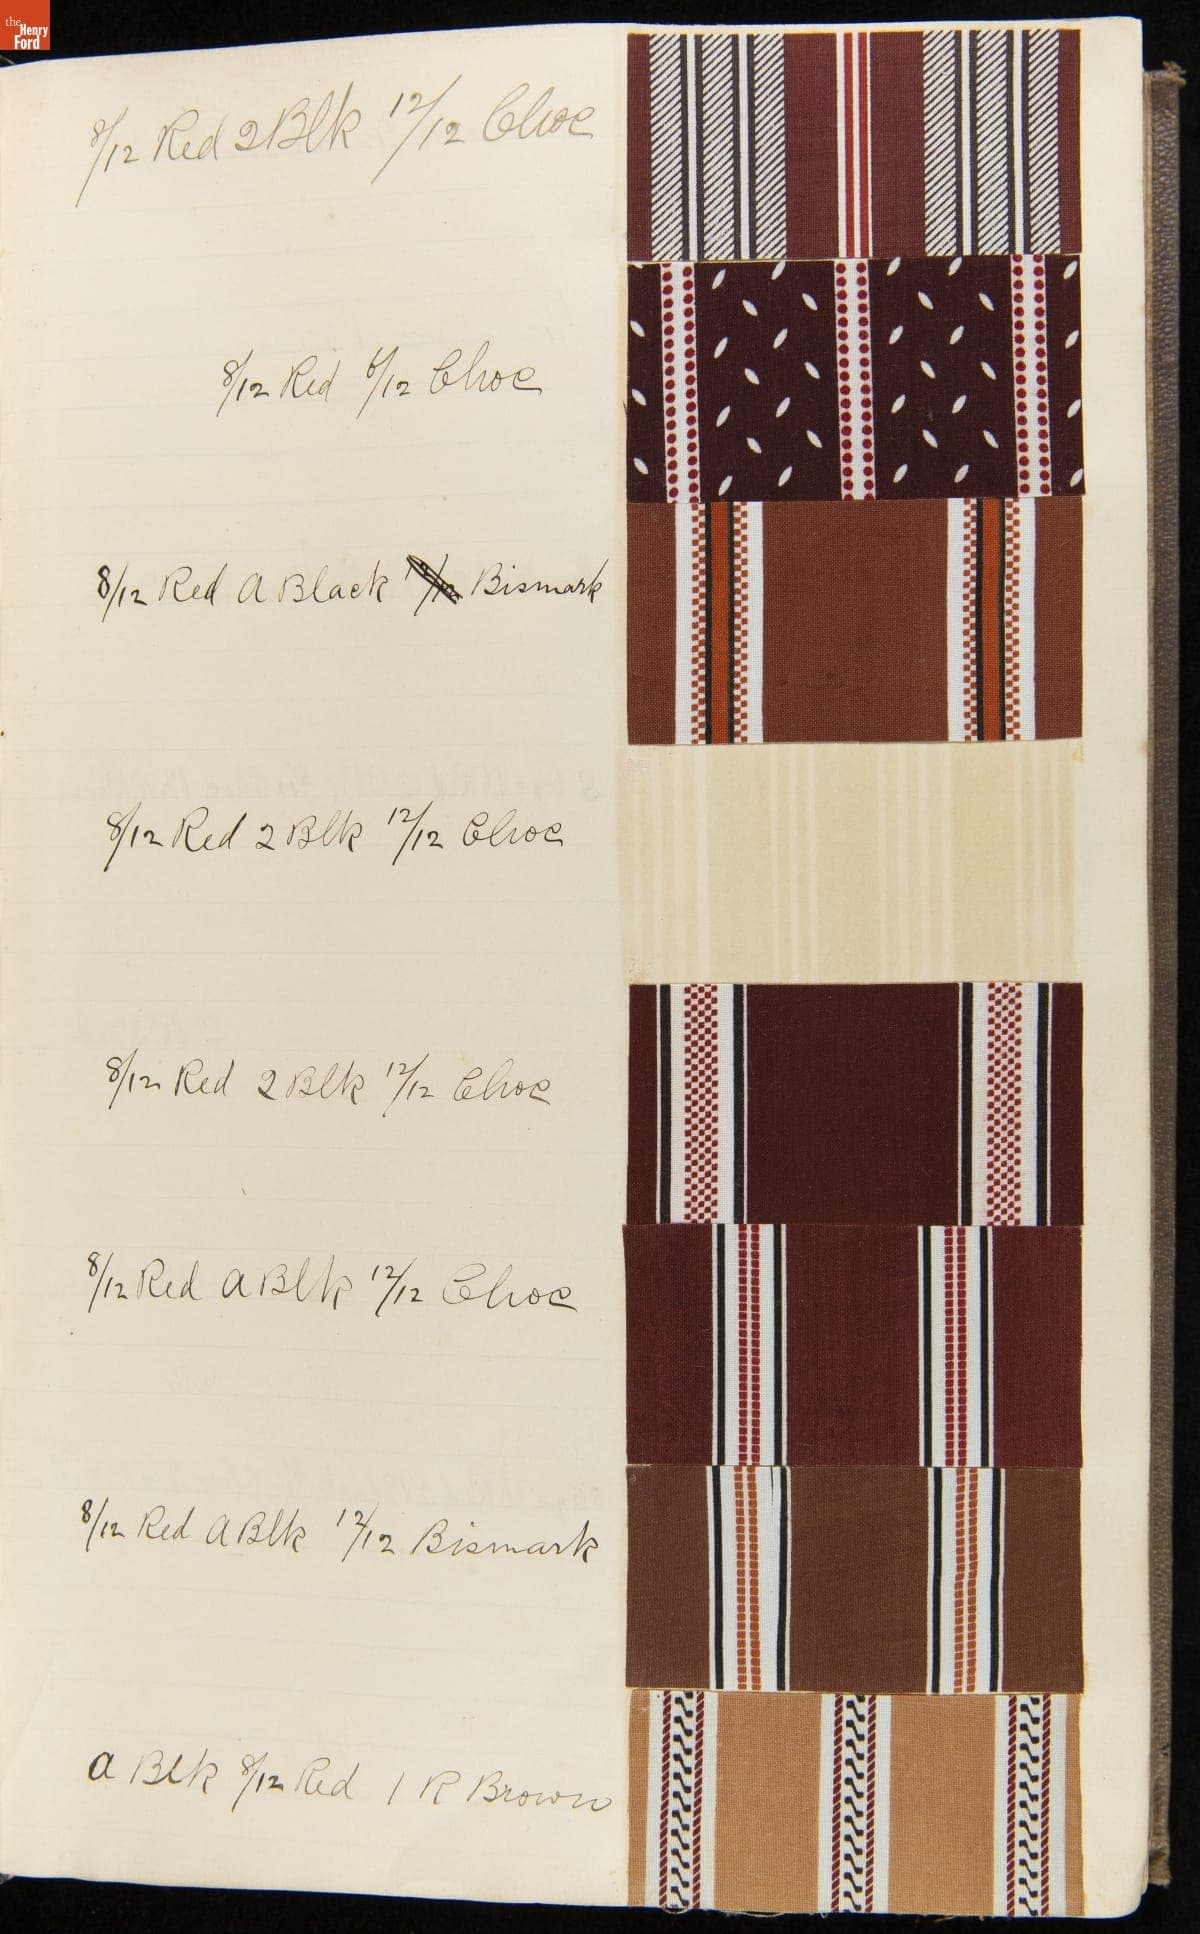 the
Henry
Ford
8/12 Red 2 Blk 12/12 Choc
8/12 Red 6/12 Choc
8/12 Red A Black Bismark
8/12 Red 2 Blk 12/12 Choc
8/12 Red 2 Blk 12/12 Choc
8/12 Red A Blk 12/12 Choc
8/12 Red A Blk 12/12 Bismark
A Blk 8/12 Red 1 R Brown